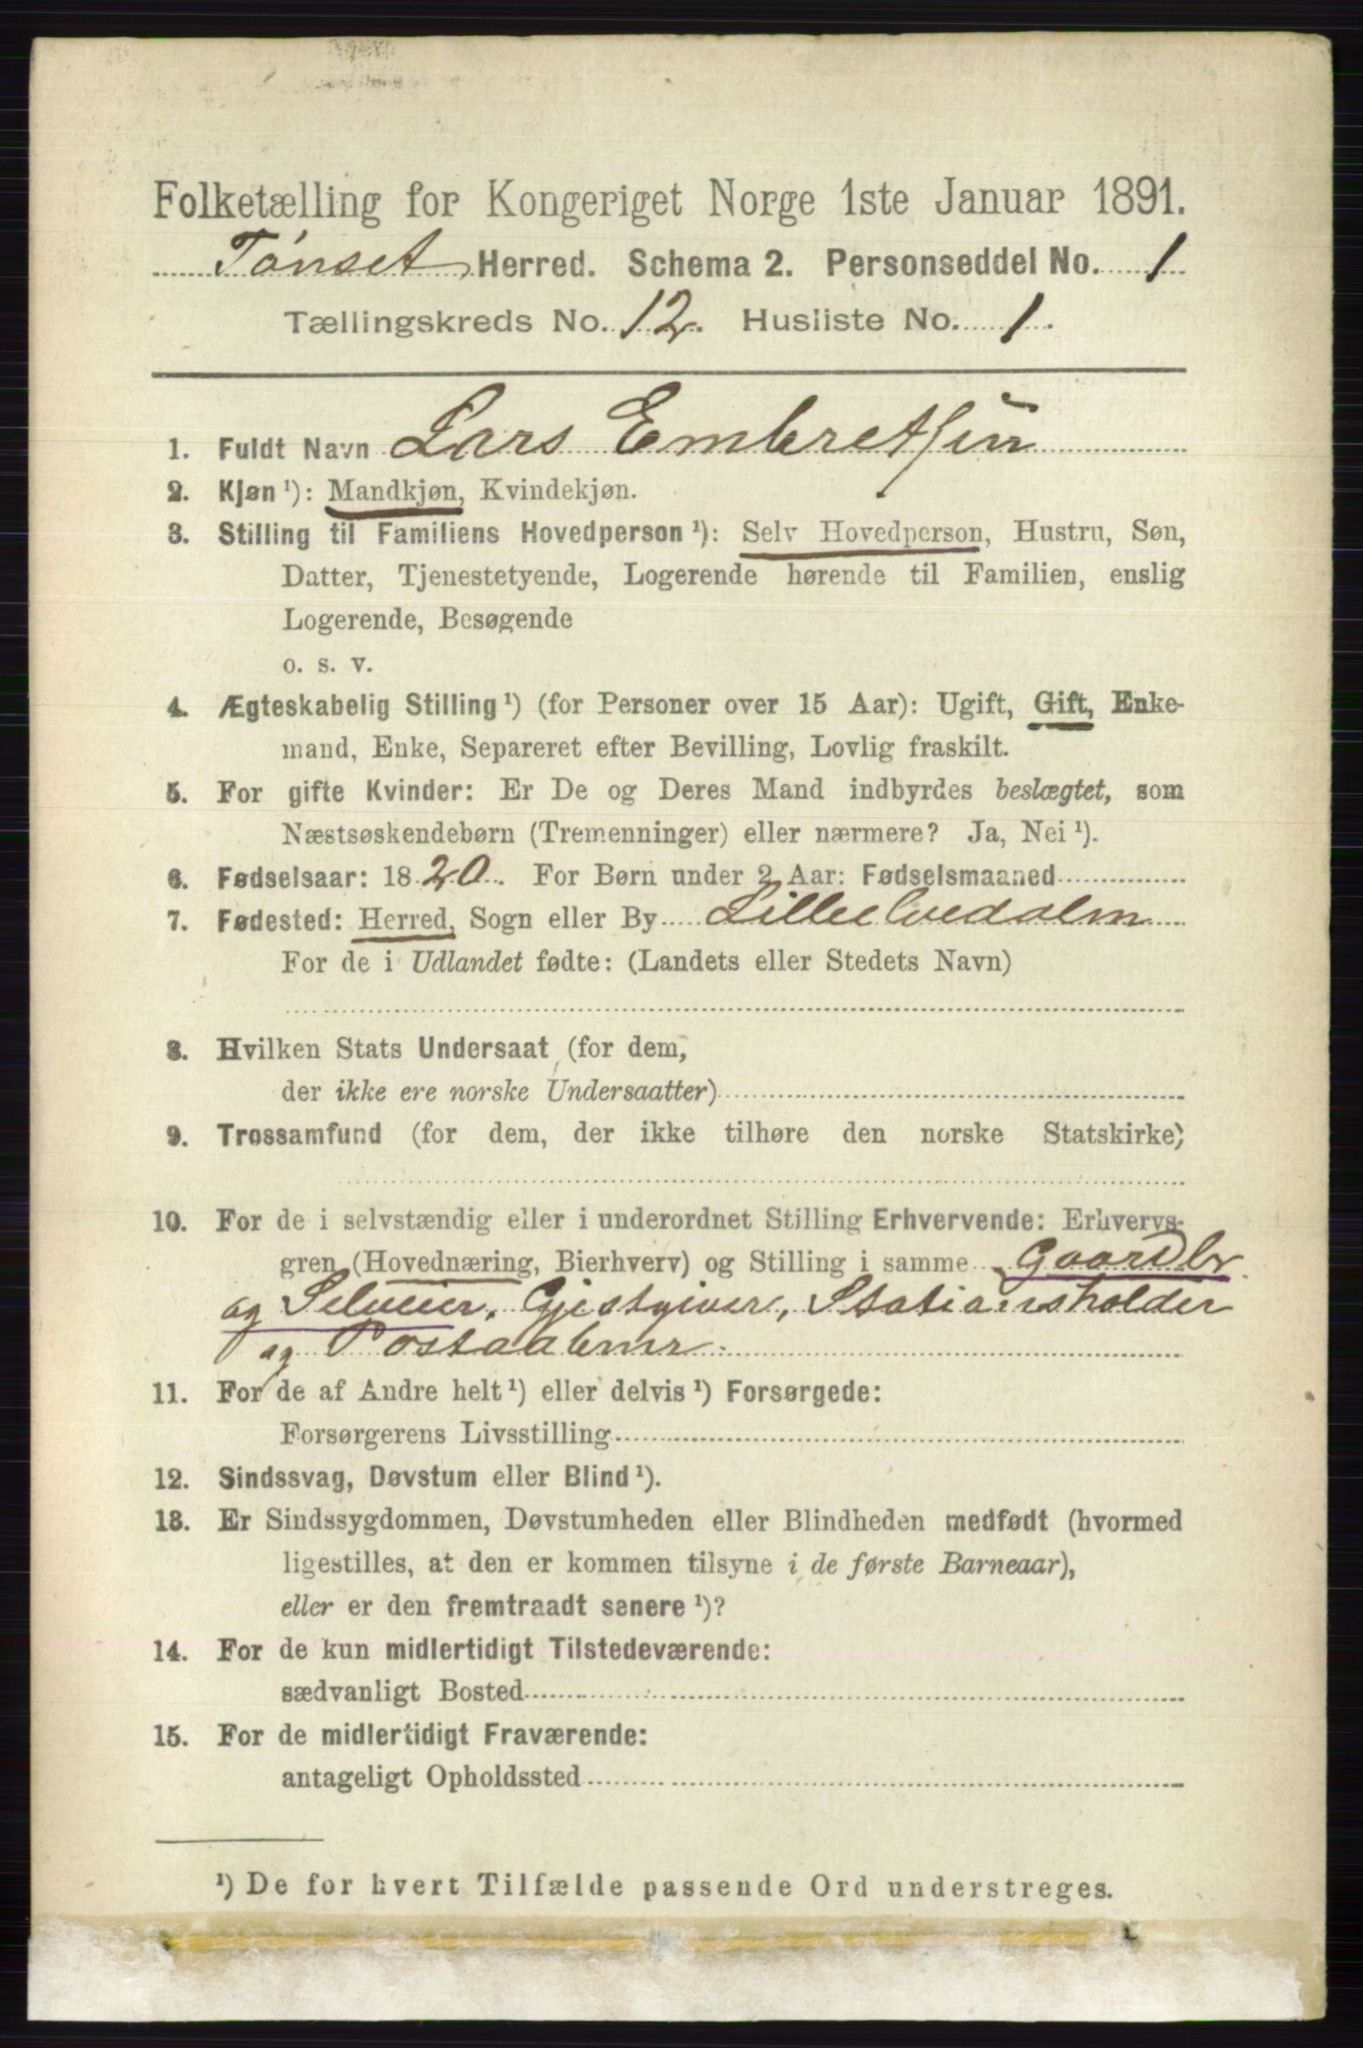 Folketælling for Kongeriget Norge 1ste Januar 1891.
Tønset Herred. Schema 2. Personseddel No. 1
Tællingskreds No. 12. Husliste No. 1.
1. Fuldt Navn Lars Embretsen
2. Kjøn ¹): Mandkjøn, Kvindekjøn.
3. Stilling til Familiens Hovedperson ¹): Selv Hovedperson, Hustru, Søn,
Datter, Tjenestetyende, Logerende hørende til Familien, enslig
Logerende, Besøgende
o. s. v.
4. Ægteskabelig Stilling ¹) (for Personer over 15 Aar): Ugift, Gift, Enke-
mand, Enke, Separeret efter Bevilling, Lovlig fraskilt.
5. For gifte Kvinder: Er De og Deres Mand indbyrdes beslægtet, som
Næstsøskendebørn (Tremenninger) eller nærmere? Ja, Nei ¹).
6. Fødselsaar: 1820. For Børn under 2 Aar: Fødselsmaaned
7. Fødested: Herred, Sogn eller By Lilleelvedalen
For de i Udlandet fødte: (Landets eller Stedets Navn)
8. Hvilken Stats Undersaat (for dem,
der ikke ere norske Undersaatter)
9. Trossamfund (for dem, der ikke tilhøre den norske Statskirke)
10. For de i selvstændig eller i underordnet Stilling Erhvervende: Erhvervs-
gren (Hovednæring, Bierhverv) og Stilling i samme Gaardbr.
og Selveier, Gjestgiver, Stationsholder
og Postaabner.
11. For de af Andre helt ¹) eller delvis ¹) Forsørgede:
Forsørgerens Livsstilling
12. Sindssvag, Døvstum eller Blind ¹).
13. Er Sindssygdommen, Døvstumheden eller Blindheden medfødt (hvormed
ligestilles, at den er kommen tilsyne i de første Barneaar),
eller er den fremtraadt senere ¹)?
14. For de kun midlertidigt Tilstedeværende:
sædvanligt Bosted
15. For de midlertidigt Fraværende:
antageligt Opholdssted
¹) De for hvert Tilfælde passende Ord understreges.